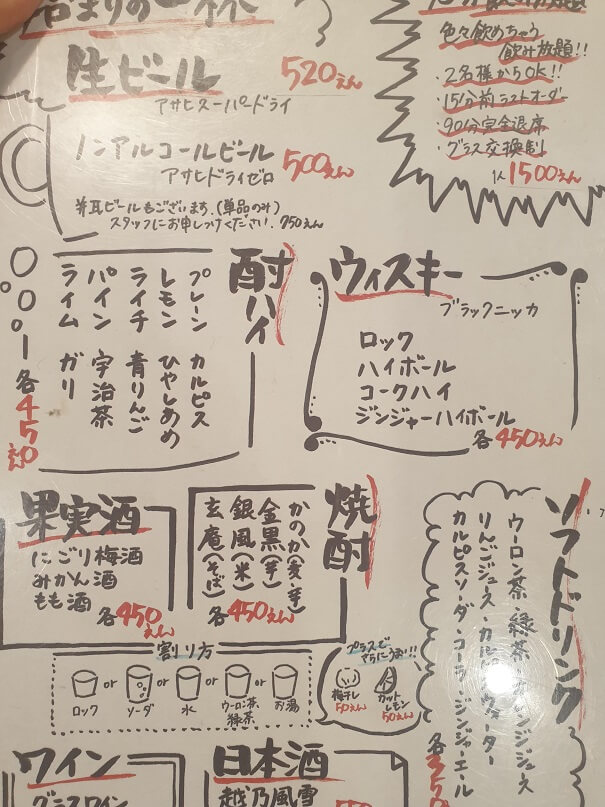 生ビール 520えん
アサヒスーパードライ
ノンアルコールビール 500えん
アサヒドライゼロ
瓶ビールもございます。(単品のみ)
スタッフにお申しつけください。750えん
色々飲めちゃう
飲み放題!!
・2名様からOK!!
・15分前ラストオーダー
・90分完全退席
・グラス交換制
1人 1500えん
酎ハイ
プレーン カルピス
レモン ひやしあめ
ライチ 青りんご
パイン 宇治茶
ライム ガリ
各450えん
ウィスキー
ブラックニッカ
ロック
ハイボール
コークハイ
ジンジャーハイボール
各450えん
果実酒
にごり梅酒
みかん酒
もも酒
各450えん
焼酎
かのか(麦・芋)
金黒(芋)
銀風(米)
玄庵(そば)
各450えん
割り方
ロック or ソーダ or 水 or ウーロン茶 緑茶 or お湯
プラスで
さらにうまい!!
梅干し
50えん
カット
レモン
50えん
ソフトドリンク
ウーロン茶・緑茶・オレンジジュース
りんごジュース・カルピスウォーター
カルピスソーダ・コーラ・ジンジャーエール
各350
ワイン
グラスワイン
日本酒
越乃風雪